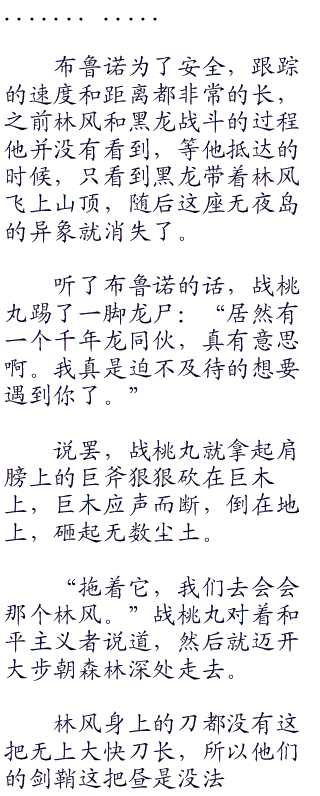 ....... .....
布鲁诺为了安全，跟踪
的速度和距离都非常的长，
之前林风和黑龙战斗的过程
他并没有看到，等他抵达的
时候，只看到黑龙带着林风
飞上山顶，随后这座无夜岛
的异象就消失了。
听了布鲁诺的话，战桃
丸踢了一脚龙尸：“居然有
一个千年龙同伙，真有意思
啊。我真是迫不及待的想要
遇到你了。”
说罢，战桃丸就拿起肩
膀上的巨斧狠狠砍在巨木
上，巨木应声而断，倒在地
上，砸起无数尘土。
“拖着它，我们去会会
那个林风。”战桃丸对着和
平主义者说道，然后就迈开
大步朝森林深处走去。
林风身上的刀都没有这
把无上大快刀长，所以他们
的剑鞘这把昼是没法